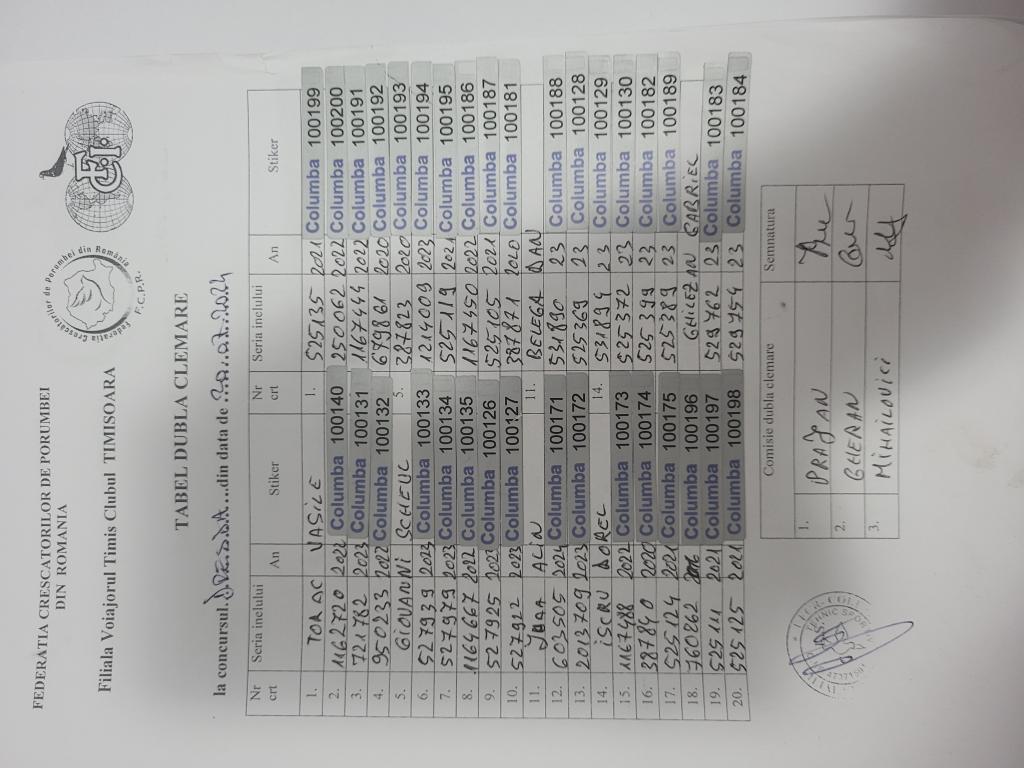 FEDERATIA CRESCATORILOR DE PORUMBEI
DIN ROMANIA
Filiala Voiajorul Timis Clubul TIMISOARA
Federatia Crescatorilor de Porumbei din România
F.C.P.R.
TABEL DUBLA CLEMARE
la concursul. DRESDA...din data de
Nr crt Seria inelului An Stiker Nr crt Seria inelului An Stiker
1. TORAC VASILE 1. 525135 2021 Columba 100199
2. 1162720 2022 Columba 100140 250062 2022 Columba 100200
3. 721782 2023 Columba 100131 1167444 2022 Columba 100191
4. 950233 2022 Columba 100132 679861 2020 Columba 100192
5. GIOVANNI SCHEUC 5. 387823 2020 Columba 100193
6. 527939 2023 Columba 100133 1214009 2023 Columba 100194
7. 527979 2023 Columba 100134 525119 2021 Columba 100195
8. 1164667 2022 Columba 100135 1167450 2022 Columba 100186
9. 527925 2023 Columba 100126 525105 2021 Columba 100187
10. 527912 2023 Columba 100127 387871 2020 Columba 100181
11. ALIN 11. BELEGA DAN
12. 603505 2024 Columba 100171 531890 23 Columba 100188
13. 2013709 2023 Columba 100172 525369 23 Columba 100128
14. ISCRU DOREL 14. 531894 23 Columba 100129
15. 1167488 2022 Columba 100173 525372 23 Columba 100130
16. 387840 2020 Columba 100174 525399 23 Columba 100182
17. 525124 2021 Columba 100175 525389 23 Columba 100189
18. 760662 Columba 100196 GHIEZAN GABRIEL
19. 525111 2021 Columba 100197 529762 23 Columba 100183
20. 525125 2021 Columba 100198 529754 23 Columba 100184
Comisie dubla clemare Semnatura
1. PRAJAN
2. GHERAN
3. MIHAILOVICI